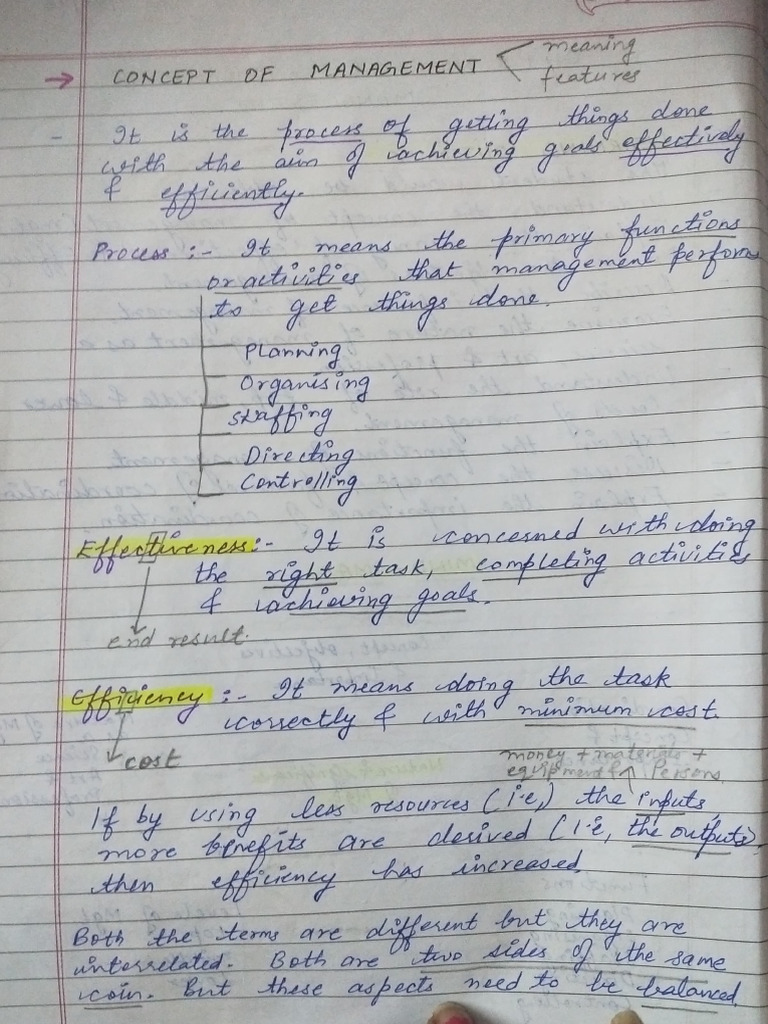 → CONCEPT OF MANAGEMENT < meaning
features
- It is the process of getting things done
with the aim of achieving goals effectively
& efficiently.
Process :- It means the primary functions
or activities that management perform
to get things done.
Planning
Organising
Staffing
Directing
Controlling
Effectiveness:- It is concerned with doing
the right task, completing activities
& achieving goals.
end result.
Efficiency :- It means doing the task
correctly & with minimum cost.
cost
money + materials +
equipment & Persons
If by using less resources (i.e,) the inputs,
more benefits are derived (i.e, the outputs)
then efficiency has increased.
Both the terms are different but they are
interrelated. Both are two sides of the same
coin. But these aspects need to be balanced